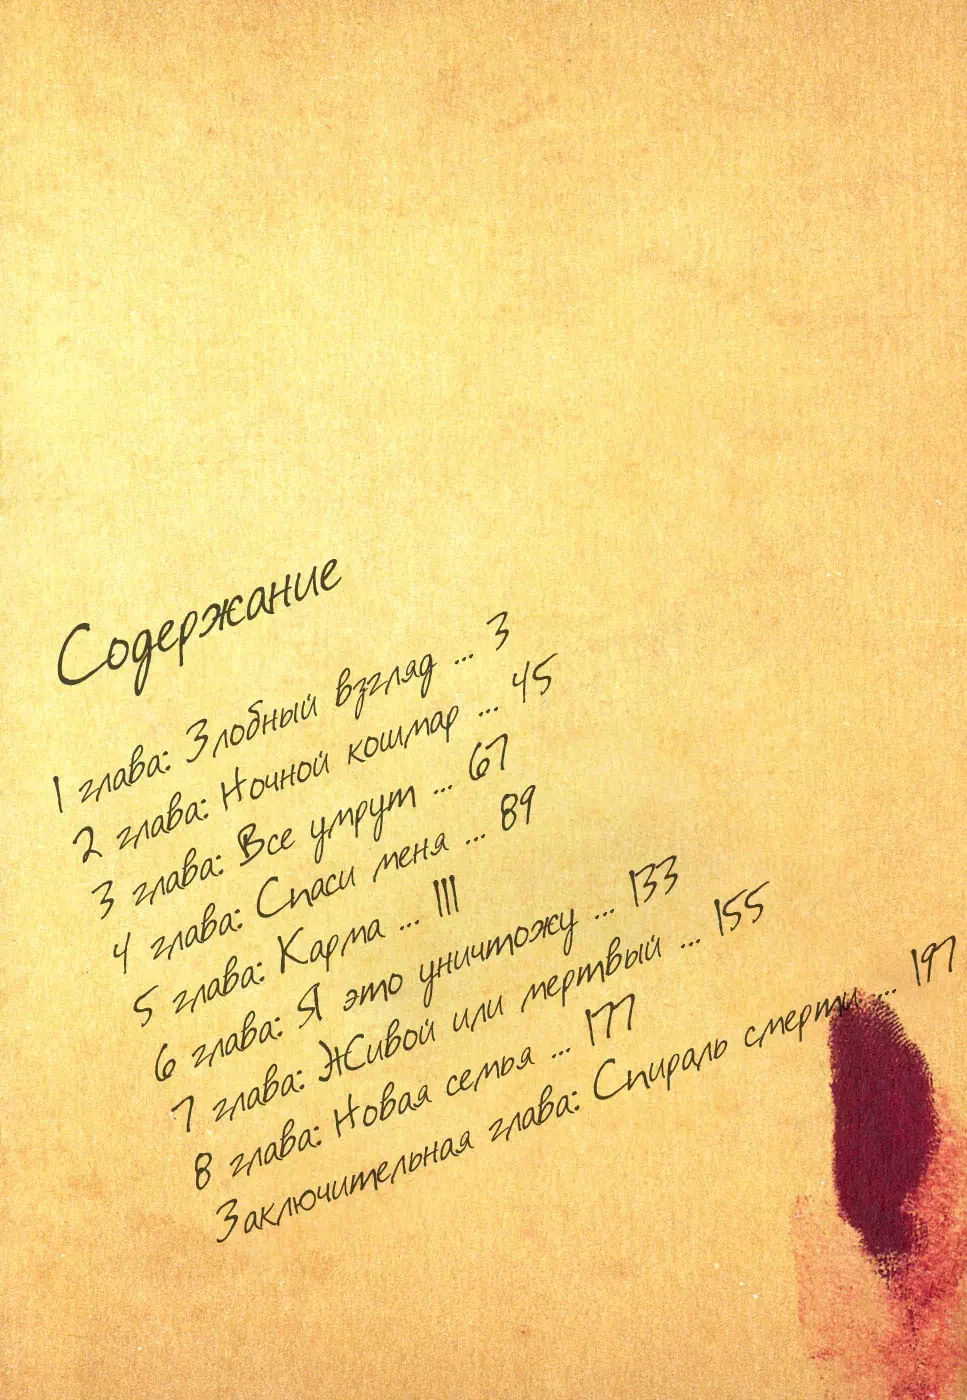 Содержание
1 глава: Злобный взгляд ... 3
2 глава: Ночной кошмар ... 45
3 глава: Все умрут ... 67
4 глава: Спаси меня ... 89
5 глава: Карма ... 111
6 глава: Я это уничтожу ... 133
7 глава: Живой или мертвый ... 155
8 глава: Новая семья ... 177
Заключительная глава: Спираль смерти ... 197